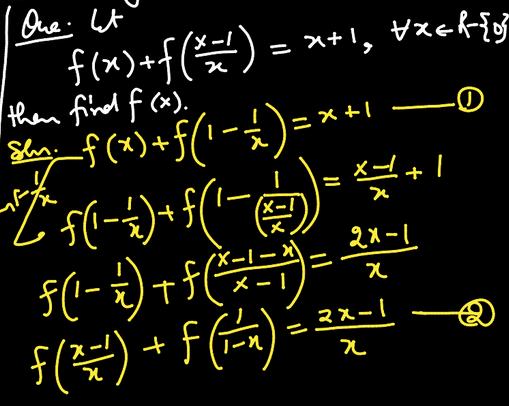 Que: Let
f(x) + f((x-1)/x) = x+1, ∀ x ∈ R-{0}
then find f(x).
Soln. f(x) + f(1 - 1/x) = x+1 —— ①
1 - 1/x
f(1 - 1/x) + f(1 - 1/((x-1)/x)) = (x-1)/x + 1
f(1 - 1/x) + f((x-1-x)/(x-1)) = (2x-1)/x
f((x-1)/x) + f(1/(1-x)) = (2x-1)/x —— ②